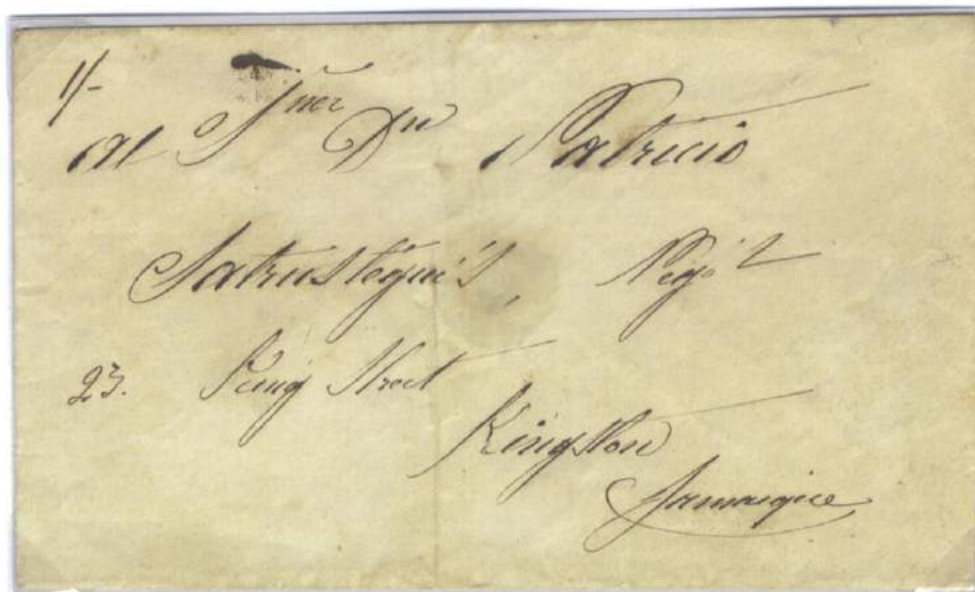 1/-
Al Sñor Dn Patricio
Satrustegui,
23. King Street
Kingston
Jamaique